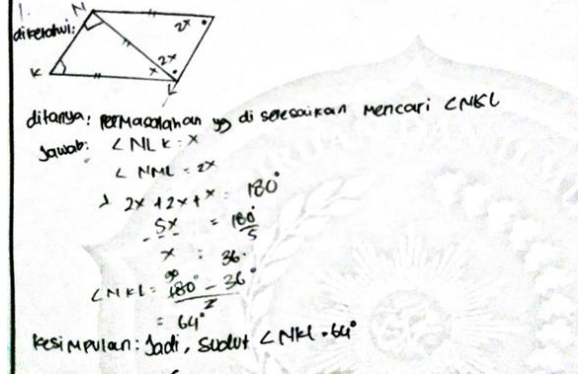 1.
diketahui:
N
2x
2x
x
K
L
ditanya: permasalahan yg di selesaikan mencari ∠NKL
Jawab: ∠NLK = x
∠NML = 2x
2x + 2x + x = 180°
5x = 180°/5
x = 36.
∠NKL = 180° - 36° / 2
= 64°
Kesimpulan: Jadi, sudut ∠NKL = 64°